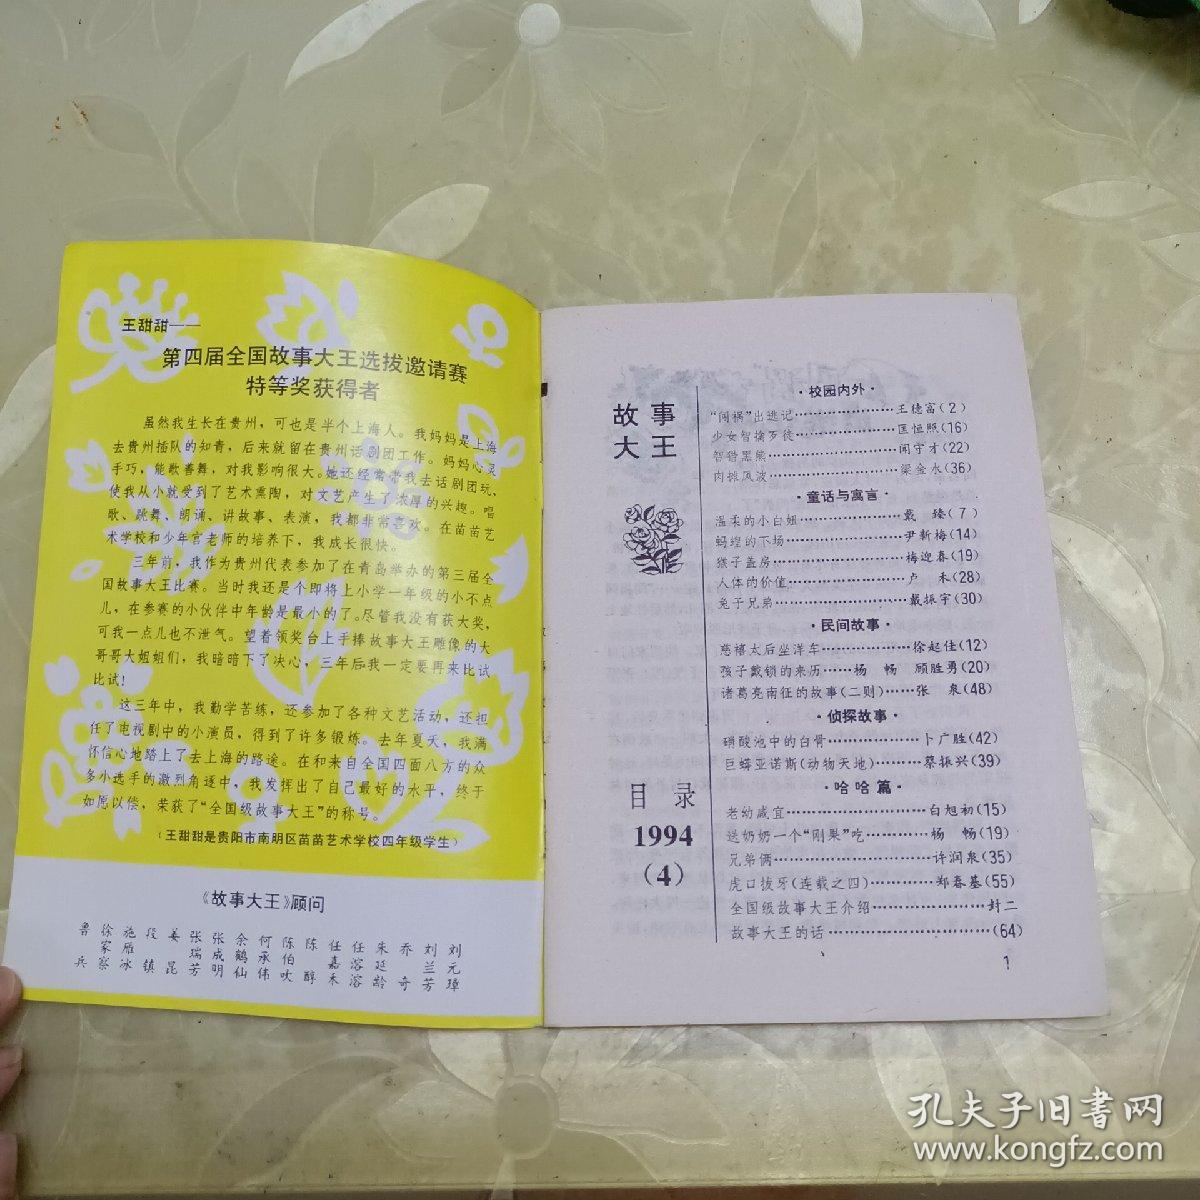 王甜甜——
第四届全国故事大王选拔邀请赛
特等奖获得者
虽然我生长在贵州，可也是半个上海人。我妈妈是上海
去贵州插队的知青，后来就留在贵州话剧团工作。妈妈心灵
手巧，能歌善舞，对我影响很大。她还经常带我去话剧团玩，
使我从小就受到了艺术熏陶，对文艺产生了浓厚的兴趣。唱
歌、跳舞、朗诵、讲故事、表演，我都非常喜欢。在苗苗艺
术学校和少年宫老师的培养下，我成长很快。
三年前，我作为贵州代表参加了在青岛举办的第三届全
国故事大王比赛。当时我还是个即将上小学一年级的小不点
儿，在参赛的小伙伴中年龄是最小的了。尽管我没有获大奖，
可我一点儿也不泄气。望着领奖台上手捧故事大王雕像的大
哥哥大姐姐们，我暗暗下了决心，三年后我一定要再来比试
比试！
这三年中，我勤学苦练，还参加了各种文艺活动，还担
任了电视剧中的小演员，得到了许多锻炼。去年夏天，我满
怀信心地踏上了去上海的路途。在和来自全国四面八方的众
多小选手的激烈角逐中，我发挥出了自己最好的水平，终于
如愿以偿，荣获了“全国级故事大王”的称号。
（王甜甜是贵阳市南明区苗苗艺术学校四年级学生）
《故事大王》顾问
鲁兵 徐家察 施雁冰 段镇 姜昆 张瑞芳 张成明 余鹤仙 何承伟 陈伯吹 陈醇 任嘉禾 任溶溶 朱延龄 乔奇 刘兰芳 刘元璋
故事
大王
目录
1994
（4）
·校园内外·
“闯祸”出逃记……………………王德富（2）
少女智擒歹徒……………………匡恒照（16）
智猎黑熊……………………闻守才（22）
肉摊风波……………………梁金水（36）
·童话与寓言·
温柔的小白妞……………………戴 臻（7）
蚂蝗的下场……………………尹新梅（14）
猴子盖房……………………梅迎春（19）
人体的价值……………………卢 禾（28）
兔子兄弟……………………戴振宇（30）
·民间故事·
慈禧太后坐洋车……………徐起佳（12）
孩子戴锁的来历……杨 畅 顾胜勇（20）
诸葛亮南征的故事（二则）……张 泉（48）
·侦探故事·
硝酸池中的白骨……………卜广胜（42）
巨蟒亚诺斯（动物天地）………蔡振兴（39）
·哈哈篇·
老幼咸宜……………………白旭初（15）
送奶奶一个“刚果”吃…………杨 畅（19）
兄弟俩……………………许润泉（35）
虎口拔牙（连载之四）…………郑春基（55）
全国级故事大王介绍…………………封二
故事大王的话……………………………（64）
1
孔夫子旧书网
www.kongfz.com